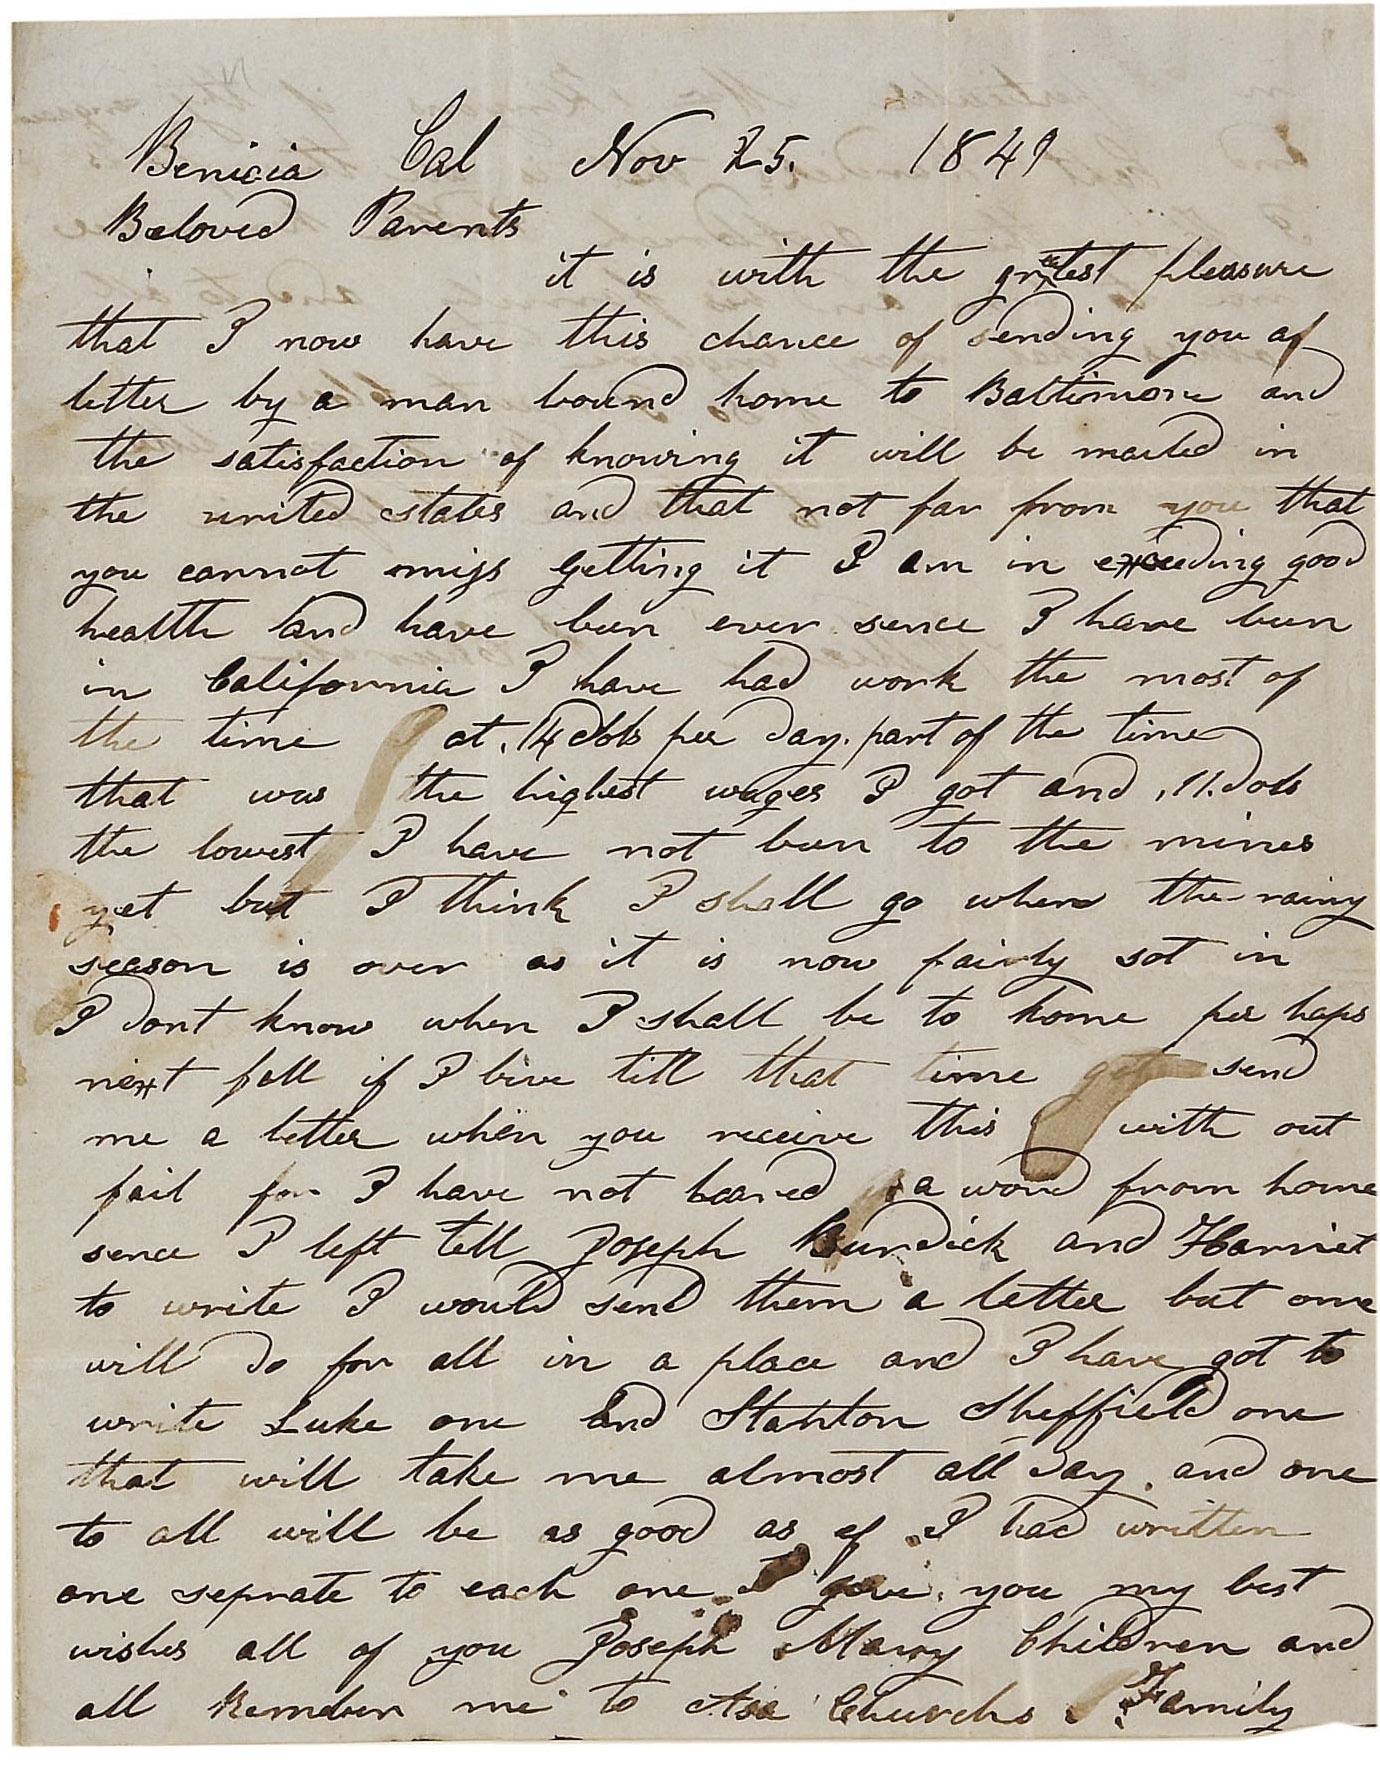 Benicia Cal Nov 25. 1849
Beloved Parents
it is with the gratest pleasure
that I now have this chance of sending you a
letter by a man bound home to Baltimore and
the satisfaction of knowing it will be mailed in
the united states and that not far from you that
you cannot miss getting it I am in exceeding good
health and have been ever sence I have been
in California I have had work the most of
the time at .14 dols per day. part of the time
that was the highest wages I got and .11. dols
the lowest I have not been to the mines
yet but I think I shall go when the rainy
season is over as it is now fairly sot in
I dont know when I shall be to home per haps
next fall if I live till that time send
me a letter when you receive this with out
fail for I have not heared a word from home
sence I left tell Joseph Burdick and Harriet
to write I would send them a letter but one
will do for all in a place and I have got to
write Luke one and Stanton Sheffield one
that will take me almost all day. and one
to all will be as good as if I had written
one seprate to each one I give you my best
wishes all of you Joseph Mary Children and
all Remdber me to Asa Churchs Family